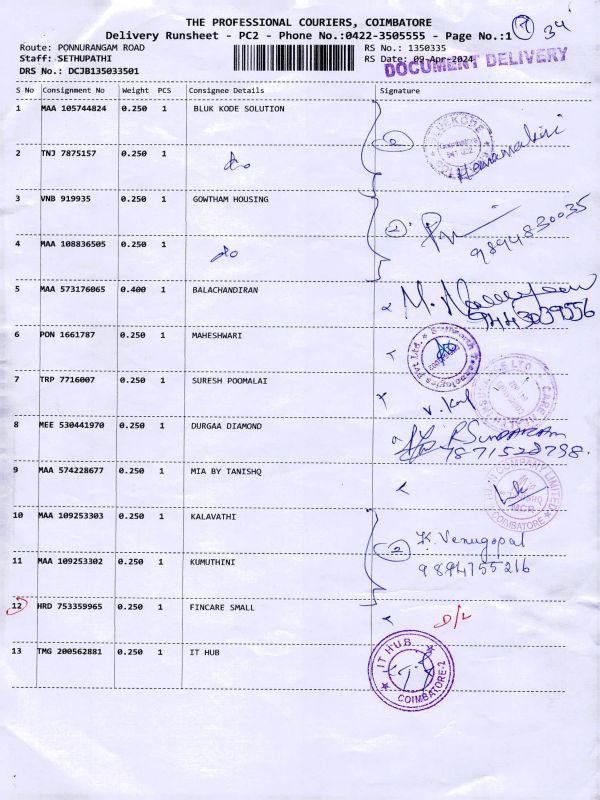 THE PROFESSIONAL COURIERS, COIMBATORE
Delivery Runsheet - PC2 - Phone No.:0422-3505555 - Page No.:1
34
Route: PONNURANGAM ROAD
RS No.: 1350335
Staff: SETHUPATHI
RS Date: 09-Apr-2024
DRS No.: DCJB135033501
DOCUMENT DELIVERY
S No Consignment No Weight PCS Consignee Details Signature
1 MAA 105744824 0.250 1 BLUK KODE SOLUTION
2 TNJ 7875157 0.250 1 do
3 VNB 919935 0.250 1 GOWTHAM HOUSING
9894830035
4 MAA 108836505 0.250 1 do
5 MAA 573176065 0.400 1 BALACHANDIRAN
9443039556
6 PON 1661787 0.250 1 MAHESHWARI
7 TRP 7716007 0.250 1 SURESH POOMALAI
8 MEE 530441970 0.250 1 DURGAA DIAMOND
R SUNDARAM
7871528798.
9 MAA 574228677 0.250 1 MIA BY TANISHQ
COIMBATORE
10 MAA 109253303 0.250 1 KALAVATHI
2 K. Venugopal
11 MAA 109253302 0.250 1 KUMUTHINI
9894755216
12 HRD 753359965 0.250 1 FINCARE SMALL
D/L
13 TMG 200562881 0.250 1 IT HUB
IT HUB
COIMBATORE-2